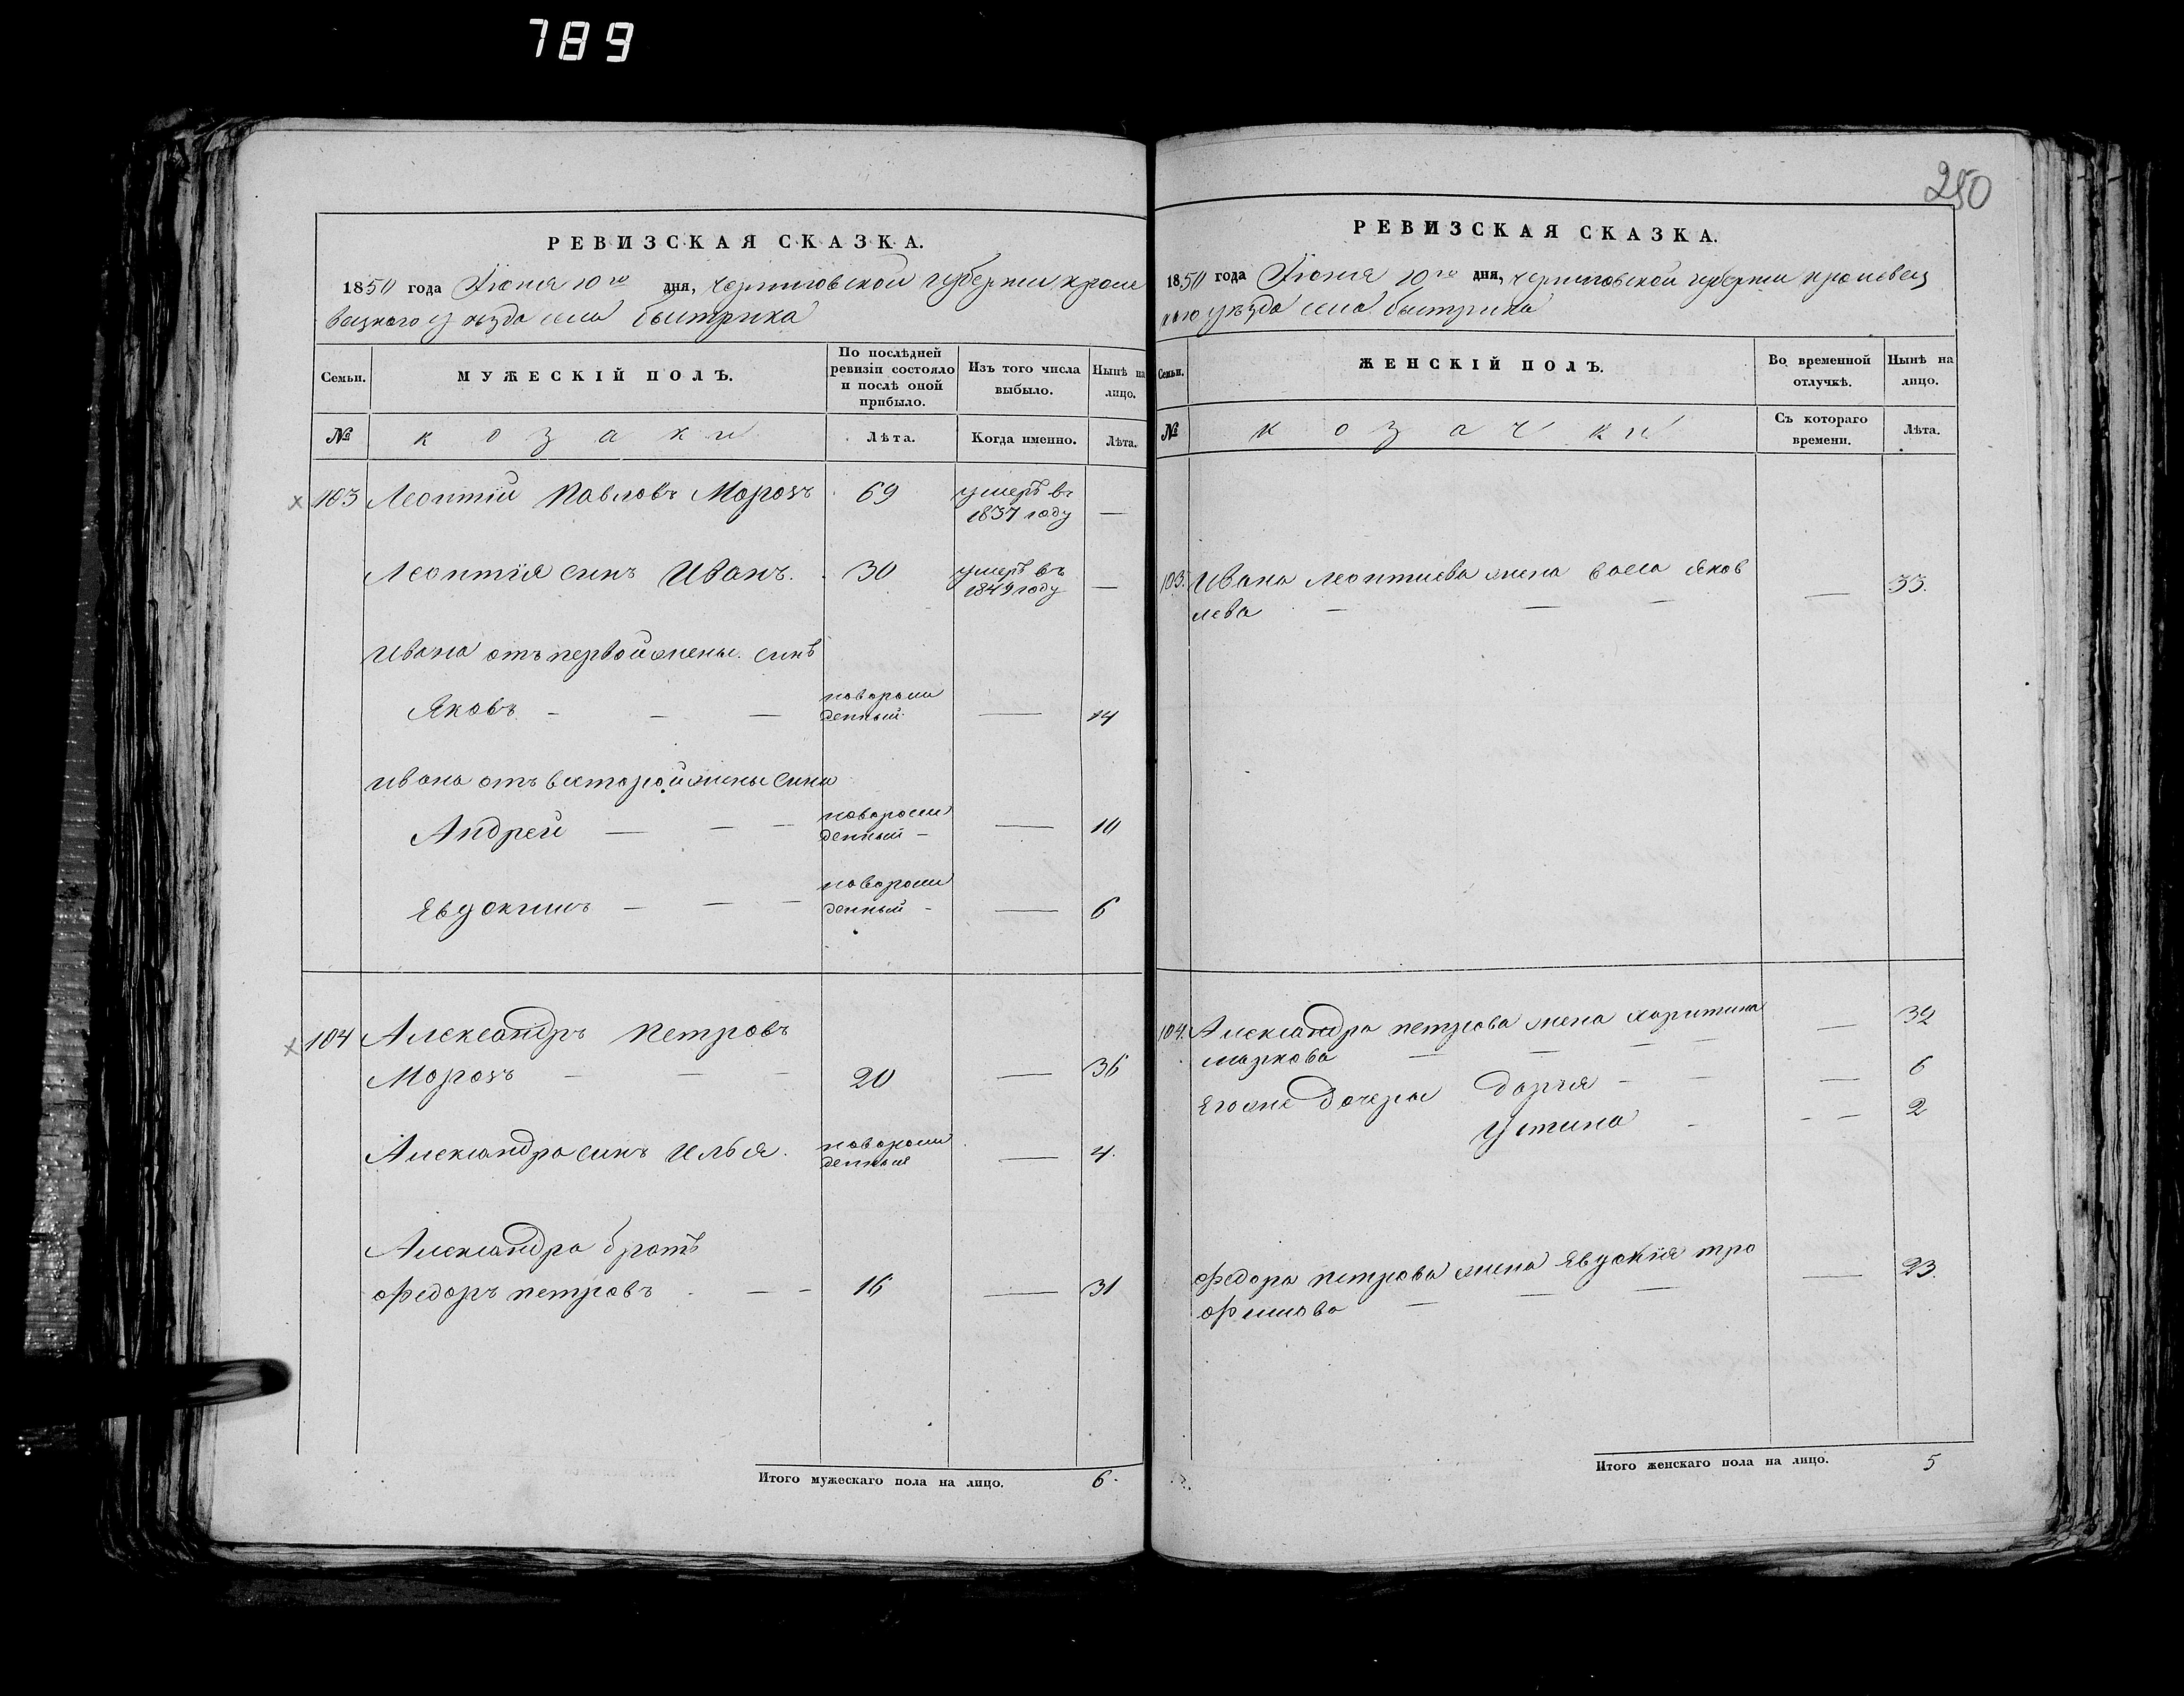 789
РЕВИЗСКАЯ СКАЗКА.
1850 года Іюня 10го дня, черниговской губерніи кроле
вецкого уѣзда села быстрика
Семьи.
МУЖЕСКІЙ ПОЛЪ.
По послѣдней
ревизіи состояло
и послѣ оной
прибыло.
Изъ того числа
выбыло.
Нынѣ на
лицо.
№
козаки
Лѣта.
Когда именно.
Лѣта.
х 103 Леонтій Павловъ Морозъ 69 умеръ въ
1837 году —
Леонтія синъ Иванъ. 30 умеръ въ
1849 году —
Ивана отъ первой жены синъ
Яковъ — — — новорож
денный — 14
Ивана отъ вєторой жены сини
Андрей — — — новорож
денный — — 10
Явдокимъ — — — новорож
денный — — 6
х 104 Александръ Петровъ
Морозъ — — — 20 — 36
Александра синъ Илья. новорож
денные — 4.
Александра братъ
Федоръ петровъ — — 16 — 31
Итого мужескаго пола на лицо. 6.
250
РЕВИЗСКАЯ СКАЗКА.
1850 года Іюня 10го дня, черниговской губерніи кролевец
кого уѣзда села быстрика
Семьи.
ЖЕНСКІЙ ПОЛЪ.
Во временной
отлучкѣ.
Нынѣ на
лицо.
№
козачки
Съ котораго
времени.
Лѣта.
103. Ивана Леонтиева жена васса яков
лева — — — — 33.
104. Александра петрова жена харитина
маркова — — — — — 32
Егоже дочери Дарья — — — 6
Устина — — — 2
Федора петрова жена Явдокия тро
фимова — — — — 23.
Итого женскаго пола на лицо. 5